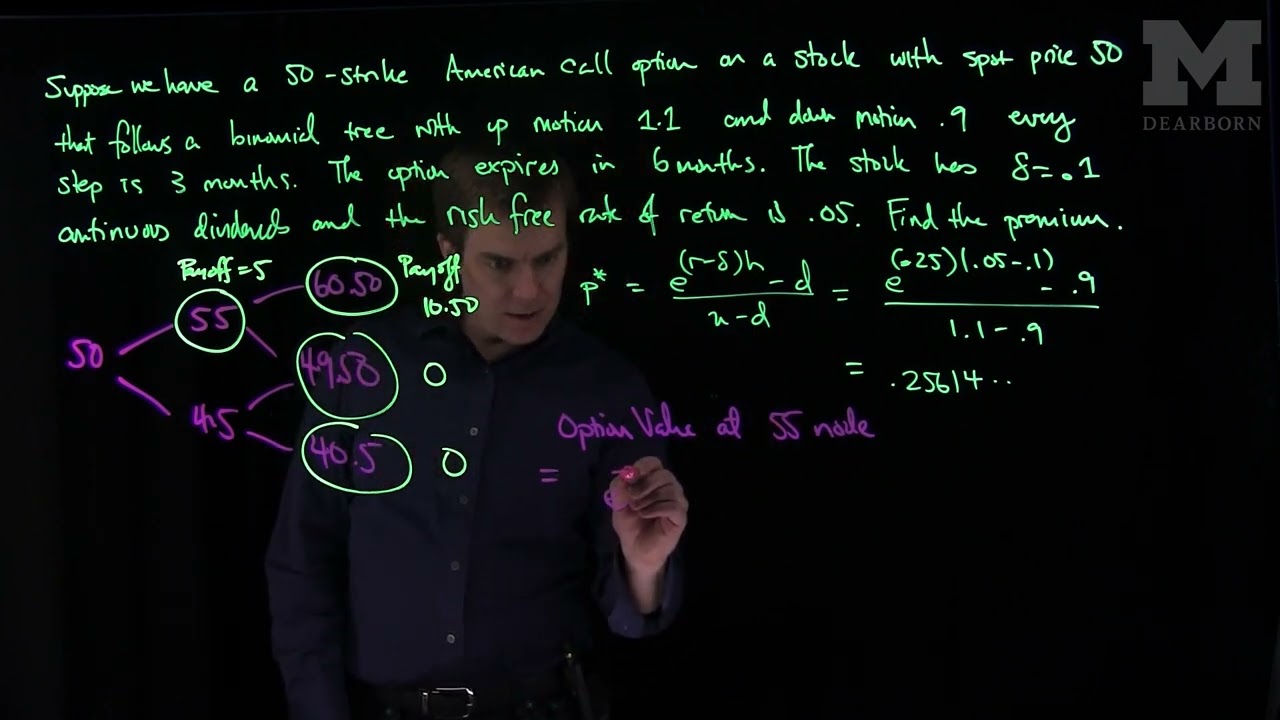 M
DEARBORN
Suppose we have a 50-strike American call option on a stock with spot price 50
that follows a binomial tree with up motion 1.1 and down motion .9 every
step is 3 months. The option expires in 6 months. The stock has δ=.1
continuous dividends and the risk free rate of return is .05. Find the premium.
Payoff=5
60.50 Payoff
10.50
55
50
49.50 0
45
40.5 0
p* = e^(r-δ)h - d / u-d = e^(.25)(.05-.1) - .9 / 1.1-.9
= .25614..
Option Value at 55 node
= e^-